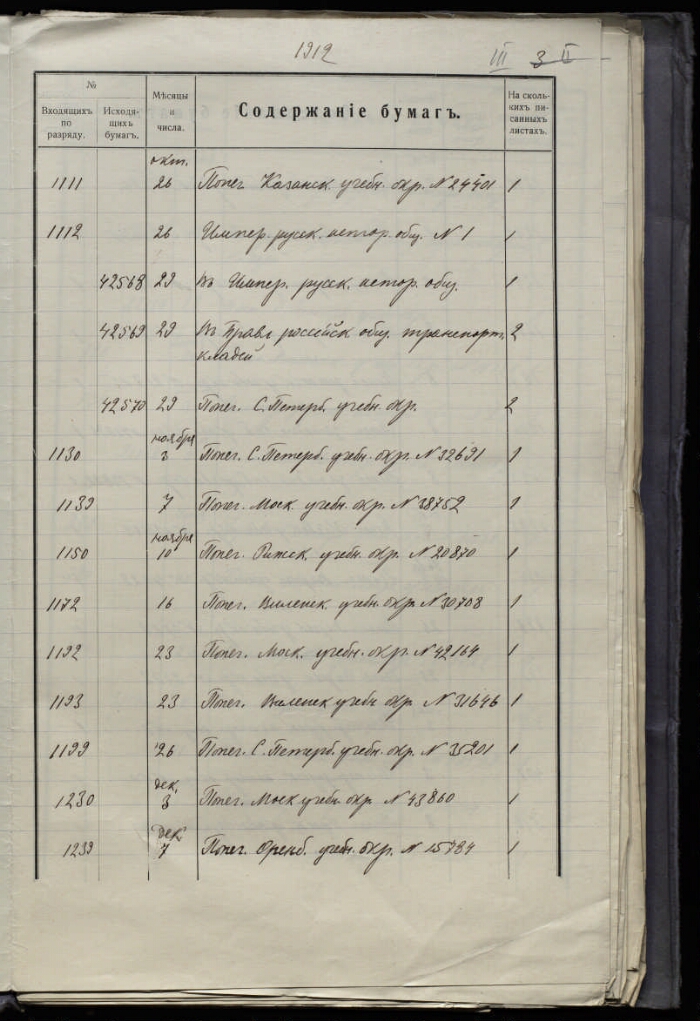 1912
III 3 II
№
Входящихъ по разряду.
Исходящихъ бумагъ.
Мѣсяцы и числа.
Содержаніе бумагъ.
На сколькихъ писанныхъ листахъ.
окт.
1111 26 Попеч. Казанск. учебн. окр. N 24401 1
1112 26 Импер. русск. истор. общ. N 1 1
42568 29 въ Импер. русск. истор. общ. 1
42569 29 Въ Правл российск общ. транспорт. 2
кладей
42570 29 Попеч. С. Петерб. учебн. окр. 2
ноября
1130 3 Попеч. С. Петерб. учебн. окр. N 32691 1
1139 7 Попеч. Моск. учебн. окр. N 38752 1
ноября
1150 10 Попеч. Рижск. учебн. окр. N 20870 1
1172 16 Попеч. Виленск. учебн. окр. N 30708 1
1192 23 Попеч. Моск. учебн. окр. N 42164 1
1193 23 Попеч. Виленск учебн окр. N 31646 1
1199 26 Попеч. С. Петерб. учебн. окр. N 35201 1
дек.
1230 3 Попеч. Моск учебн. окр. N 43860 1
дек
1239 7 Попеч. Оренб. учебн. окр. N 15784 1